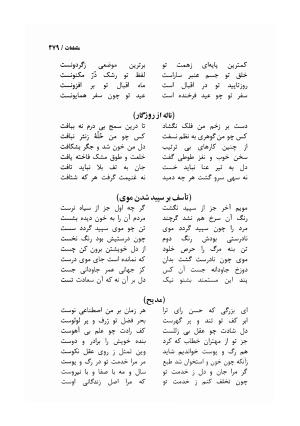 مقطعات / ۴۷۹
کمترین پایه‌های زهمت تو برترین موضعی زگردونست
خلق تو جسم عنبر ساراست لفظ تو رشک دُرّ مکنونست
روزتأیید تو در اقبال ماه اقبال تو بر افزونست
سفر تو چو عید فرخنده است عید تو چون سفر همایونست
(ناله از روزگار)
دست بر زخم من فلک نگشاد تا درین سمج بی درم نه بیافت
کس چو من گوهری به نظم نسفت کس چو من حُلّهٔ زنثر نبافت
از چنین کارهای بی ترتیب دل من خون شد و جگر بشکافت
سخن خوب و نغز طوطی گفت خلعت و طوق مشک فاخته یافت
دل به تیر عنا نباید خست جان به تف بلا نباید تافت
نه سهی سرو گشت هر چه دمید نه غنیمت گرفت هر که شتافت
(تأسف بر سپید شدن موی)
مویم آخر جز از سپید نگشت گر چه اول جز از سیاه نرست
رنگ آن سرخ هم نشد گرچند مردم آن را به خون دیده بشست
مرد را چون سپید گردد موی تن چو موی سپید گردد سست
نادرستی بودش رنگ دوم چون درستیش بود رنگ نخست
تن بنه مرگ را حرص خلود از دل خویشتن برون کن چست
موی چون نادرست گشت بدان که نمانده است جای موی درست
دوزخ جاودانه جست آن کس کز جهانی عمر جاودانی جست
پند این مستمند بشنو نیک دل بر آن نه که آن سعادت تست
(مدیح)
ای بزرگی که حسن رای ترا هر زمان بر من اصطناعی نوست
ابر کف تو تند و پر گهرست بحر فضل تو ژرف و پر لولوست
دل شادت چو عقل بی زللست کف رادت چو علم بی آهوست
جز تو از مهتران خطاب که کرد بنده خویش را برادر و دوست
هم رگ و پوست خواندیم شاید وین تمثل ز روی عقل نکوست
زانکه چون خون و استخوان شد طبع مر مرا خدمت تو در رگ و پوست
گر مرا جان و دل ز خدمت تو سال و مه با صفا و با نیروست
چون تخلف کنم ز خدمت تو که مرا اصل زندگانی اوست